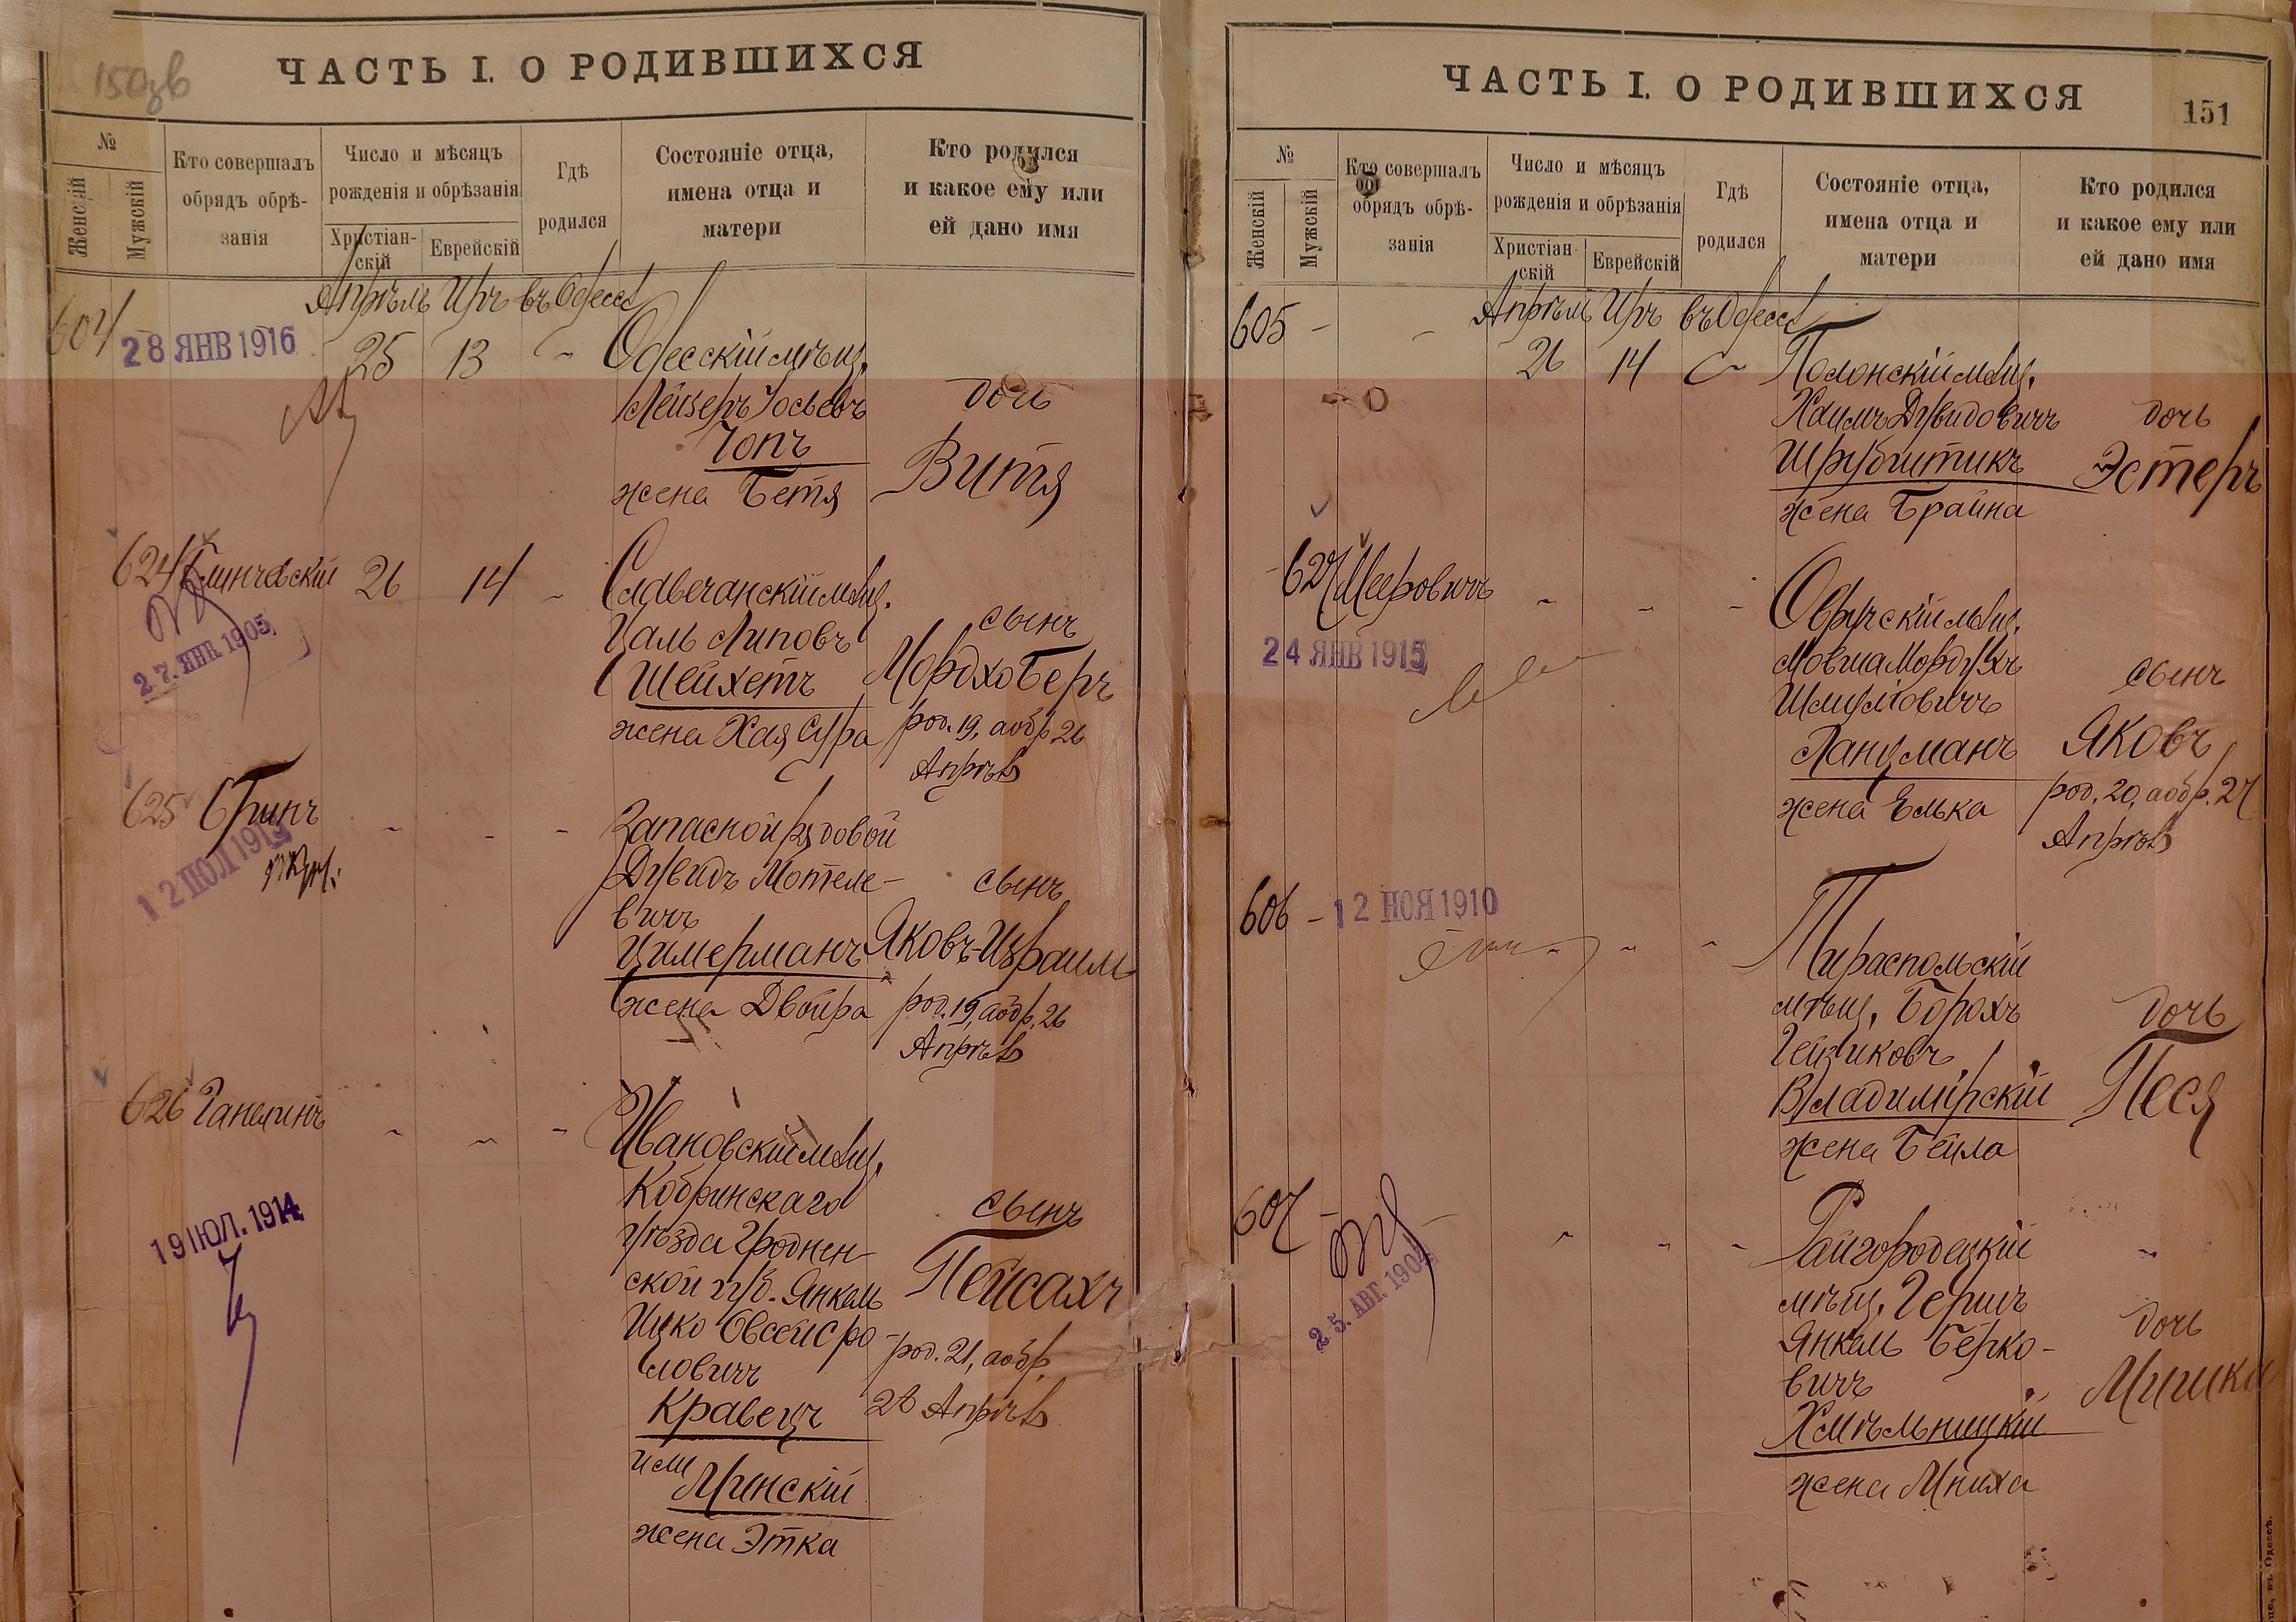 150зв
ЧАСТЬ I. О РОДИВШИХСЯ
№
Женскій
Мужскій
Кто совершалъ
обрядъ обрѣ-
занія
Число и мѣсяцъ
рожденія и обрѣзанія
Христіан-
скій
Еврейскій
Гдѣ
родился
Состояніе отца,
имена отца и
матери
Кто родился
и какое ему или
ей дано имя
Апрѣль Иръ въ Одессѣ
604
28 ЯНВ 1916
25 13 Одесскій мѣщ.
Лейзеръ Іосьевъ дочь
Чопъ
жена Бетя Витя
624 Глинчевскій 26 14 - Славечанскій мѣщ.
27. ЯНВ. 1905
Цаль Липовъ сынъ
Шейхетъ Мордхо Беръ
жена Хая Сура род. 19, а обр. 26
Апрѣля
625 Гринъ - - - Запасной рядовой
12 ІЮЛ 191
Дувидъ Мотеле- сынъ
вичъ
Цимерманъ Яковъ-Израиль
жена Двойра род. 19, а обр. 26
Апрѣля
626 Ганелинъ - - - Ивановскій мѣщ.
19 ІЮЛ. 1914
Кобринскаго
уѣзда Гроднен- сынъ
ской губ. Янкель Пейсахъ
Ицко Овсей Сро- род. 21, а обр.
ловичъ 28 Апрѣля
Кравецъ
или
Минскій
жена Этка
ЧАСТЬ I. О РОДИВШИХСЯ
151
№
Женскій
Мужскій
Кто совершалъ
обрядъ обрѣ-
занія
Число и мѣсяцъ
рожденія и обрѣзанія
Христіан-
скій
Еврейскій
Гдѣ
родился
Состояніе отца,
имена отца и
матери
Кто родился
и какое ему или
ей дано имя
Апрѣль Иръ въ Одессѣ
605 - - 26 14 Полонскій мѣщ.
Хаимъ Дувидовичъ дочь
Шрубштикъ Эстеръ
жена Брайна
627 Мееровичъ - - - Овручскій мѣщ.
24 ЯНВ 1915
Мовша Мордухъ сынъ
Шмулювичъ
Ланцманъ Яковъ
жена Елька род. 20, а обр. 27
Апрѣля
606 - 12 НОЯ 1910
Тираспольскій
мѣщ. Борохъ дочь
Гейзиковъ
Владимірскій Песя
жена Бейла
607 - - - - Райгородецкій
25. АВГ. 190
мѣщ. Гершъ
Янкель Берко- дочь
вичъ Минка
Хмѣльницкій
жена Мниха
въ Одессѣ.